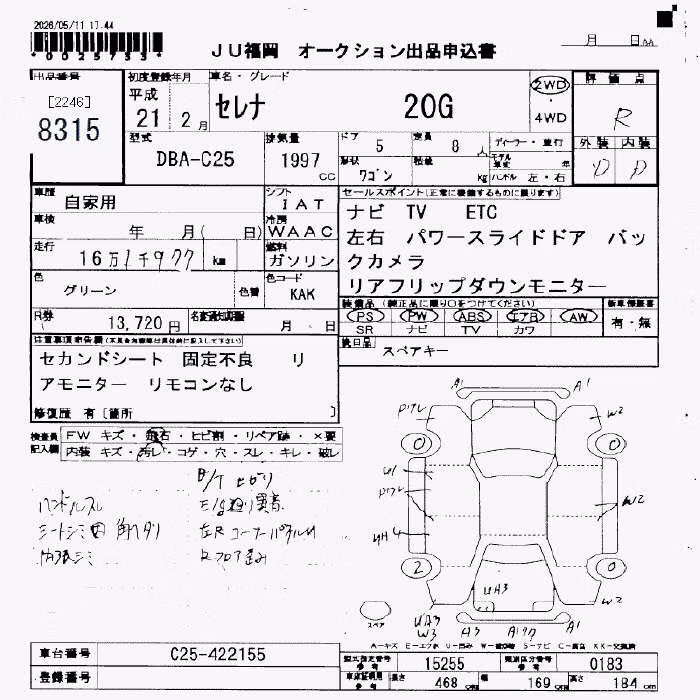 2026/05/11 17.44
*0025753*
JU福岡 オークション出品申込書
月 日
出品番号
[2246]
8315
初度登録年月
平成
21 2月
車名・グレード
セレナ 20G
2WD
4WD
評価点
R
外装 内装
D D
型式
DBA-C25
排気量
1997 cc
ドア 5
定員 8人
形状 ワゴン
積載 kg
ディーラー・並行
モデル年式 年
ハンドル 左・右
車歴
自家用
シフト
IAT
冷房
WAAC
車検
年 月( 日)
走行
16万1千977 km
燃料
ガソリン
色
グリーン
色替
色コード
KAK
R券
13,720円
名変通知期限
月 日
セールスポイント(正常に機能するものに限ります)
ナビ TV ETC
左右 パワースライドドア バッ
クカメラ
リアフリップダウンモニター
装備品 (純正品に限り○をつけてください)
PS PW ABS エアB AW
SR ナビ TV カワ
新車保証書
有・無
後日品
スペアキー
注意事項申告欄
セカンドシート 固定不良 リ
アモニター リモコンなし
修復歴 有〔箇所 〕
検査員記入欄
FW キズ・飛石・ヒビ割・リペア跡・×要
内装 キズ・汚レ・コゲ・穴・スレ・キレ・破レ
ハンドルスレ
内張シミ
A1 A1
W2
W2
W2
UH3
UA3
W3
A3
スペア
A=キズ E=エクボ U=凹み
車台番号
C25-422155
登録番号
型式指定番号 参考 15255
類別区分番号 参考 0183
車庫証明用 参考 長さ 468 cm 幅 169 cm 高さ 184 cm